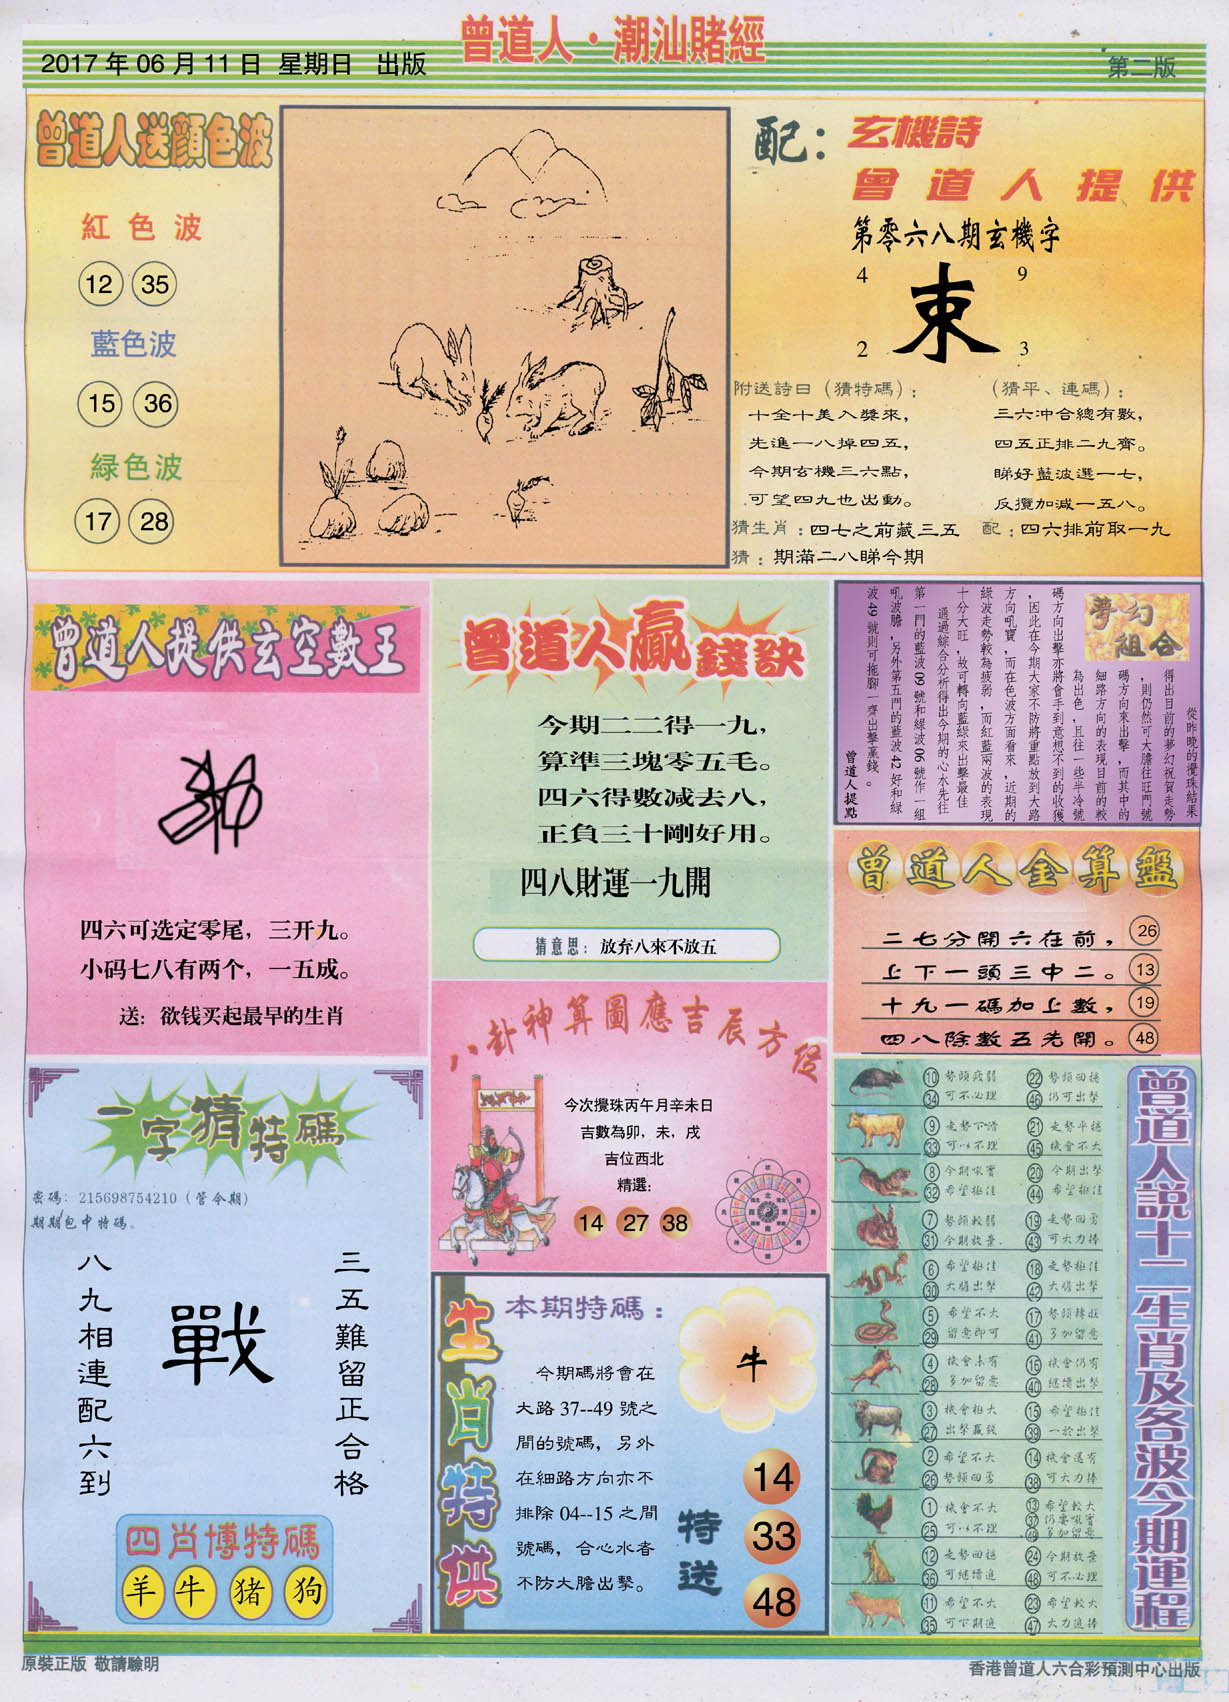 曾道人·潮汕賭經
2017 年 06 月 11 日  星期日   出版
第二版
曾道人送顔色波
紅色波
12 35
藍色波
15 36
緑色波
17 28
配：玄機詩
曾道人提供
第零六八期玄機字
4 9
束
2 3
附送詩曰（猜特碼）：
十全十美入獎來，
先進一八掉四五，
今期玄機三六點，
可望四九也出動。
（猜平、連碼）：
三六冲合總有數，
四五正排二九齊。
睇好藍波選一七，
反攬加減一五八。
猜生肖：四七之前藏三五
配：四六排前取一九
猜：期滿二八睇今期
曾道人提供玄空數王
四六可选定零尾，三开九。
小码七八有两个，一五成。
送：欲钱买起最早的生肖
曾道人贏錢訣
今期二二得一九，
算準三塊零五毛。
四六得數减去八，
正負三十剛好用。
四八財運一九開
猜意思：放弃八來不放五
夢幻組合
從昨晚的攪珠結果
得出目前的夢幻祝賀走勢
，則仍然可大膽往旺門號
碼方向來出擊，而其中的
細路方向的表現目前的較
為出色，且往一些半冷號
碼方向出擊亦將會手到意想不到的收獲
，因此在今期大家不防將重點放到大路
方向吼寶，而在色波方面看來，近期的
綠波走勢較為疲弱，而紅藍兩波的表現
十分大旺，故可轉向藍綠來出擊最佳
通過綜合分析得出今期的心水先往
第一門的藍波 09 號和綠波 06 號作一組
吼波膽，另外第五門的藍波 42 好和綠
波 49 號則可拖腳一齊出擊贏錢。
曾道人提點
曾道人金算盤
二七分開六在前， 26
上下一頭三中二。 13
十九一碼加上數， 19
四八除數五先開。 48
八卦神算圖應吉辰方位
今次攪珠丙午月辛未日
吉數為卯，未，戌
吉位西北
精選：
14 27 38
一字猜特碼
密碼：215698754210（管今期）
期期包中特碼。
三五難留正合格
戰
八九相連配六到
四肖博特碼
羊 牛 猪 狗
生肖特供
本期特碼：
牛
今期碼將會在
大路 37--49 號之
間的號碼，另外
在細路方向亦不
排除 04--15 之間
號碼，合心水者
不防大膽出擊。
特送
14
33
48
曾道人説十二生肖及各波今期運程
10 勢頭疲弱 22 勢頭回穩
34 可不必理 46 仍可出擊
9 走勢下滑 21 走勢平穩
33 可以不理 45 機會不大
8 今期吼寶 20 今期出擊
32 希望極佳 44 希望極佳
7 勢頭較弱 19 走勢回勇
31 今期放棄 43 可大力捧
6 希望極佳 18 走勢極佳
30 大膽出擊 42 大膽出擊
5 希望不大 17 勢頭轉旺
29 留意即可 41 多加留意
4 機會未有 16 機會仍有
28 多加留意 40 繼續出擊
3 機會極大 15 希望極佳
27 出擊贏錢 39 一於出擊
2 希望不大 14 機會還有
26 勢頭回勇 38 可大力捧
1 機會不大 13 希望較大
25 可以不理 37 仍要吼寶
49 多加留意
12 走勢回穩 24 今期放棄
36 可繼續追 48 可不必理
11 希望不大 23 希望較大
35 可下期追 47 大力追捧
原裝正版  敬請驗明
香港曾道人六合彩預測中心出版